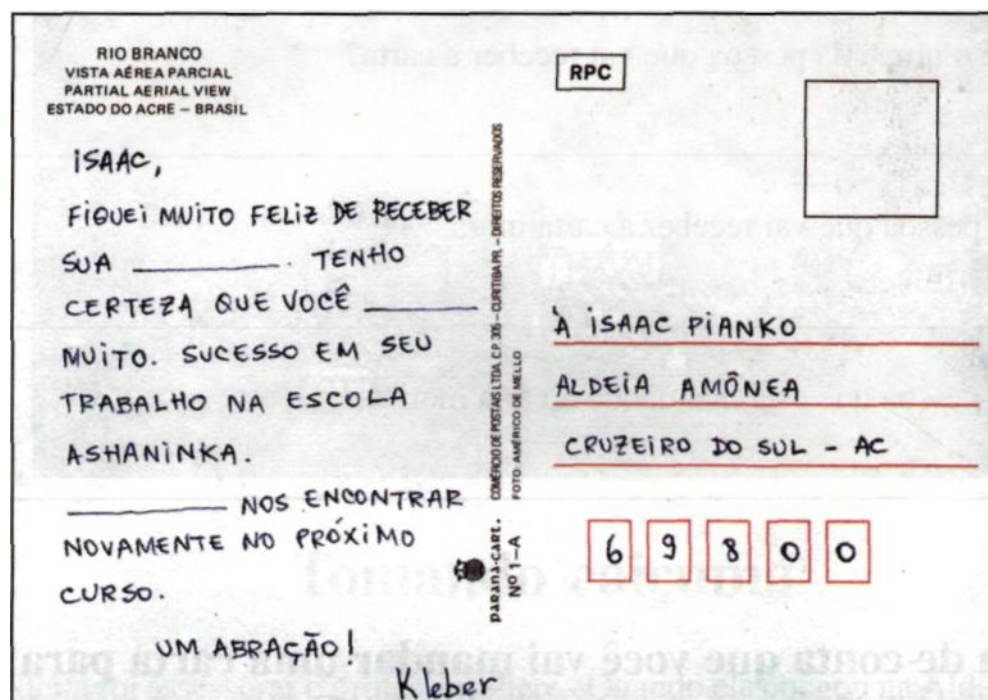 RIO BRANCO
VISTA AÉREA PARCIAL
PARTIAL AERIAL VIEW
ESTADO DO ACRE – BRASIL
ISAAC,
FIQUEI MUITO FELIZ DE RECEBER
SUA ________. TENHO
CERTEZA QUE VOCÊ ________
MUITO. SUCESSO EM SEU
TRABALHO NA ESCOLA
ASHANINKA.
________ NOS ENCONTRAR
NOVAMENTE NO PRÓXIMO
CURSO.
UM ABRAÇÃO!
Kleber
PARANÁ-CART.
Nº 1–A
COMÉRCIO DE POSTAIS LTDA. C.P. 305 – CURITIBA PR. – DIREITOS RESERVADOS
FOTO: AMÉRICO DE MELLO
RPC
À ISAAC PIANKO
ALDEIA AMÔNEA
CRUZEIRO DO SUL – AC
69800